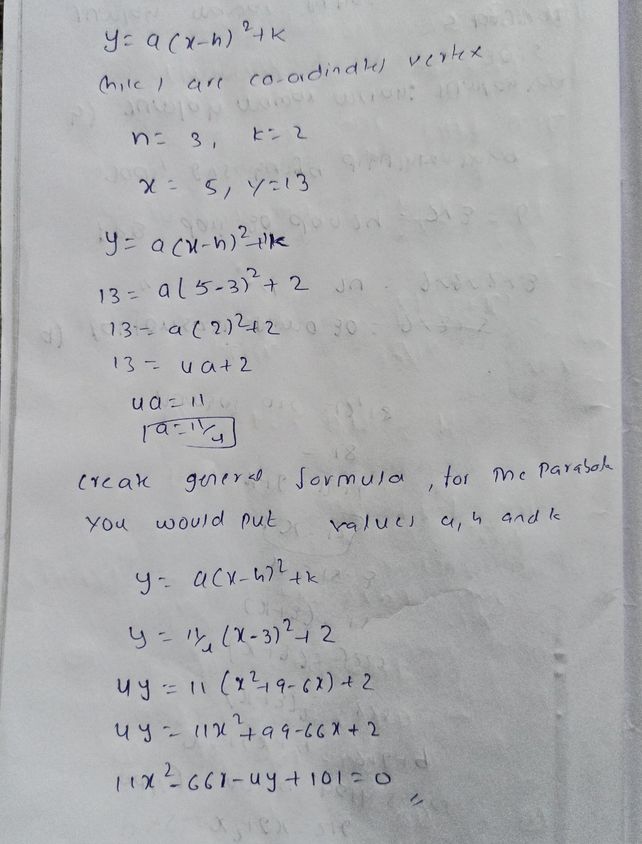 y = a(x-h)²+k
(h,k) are co-ordinates vertex
h = 3, k = 2
x = 5, y = 13
y = a(x-h)²+k
13 = a(5-3)²+2
13 = a(2)²+2
13 = 4a+2
4a = 11
a = 11/4
Create general formula, for the Parabola
you would put values a, h and k
y = a(x-h)²+k
y = 11/4 (x-3)²+2
4y = 11 (x²+9-6x)+2
4y = 11x²+99-66x+2
11x²-66x-4y+101=0